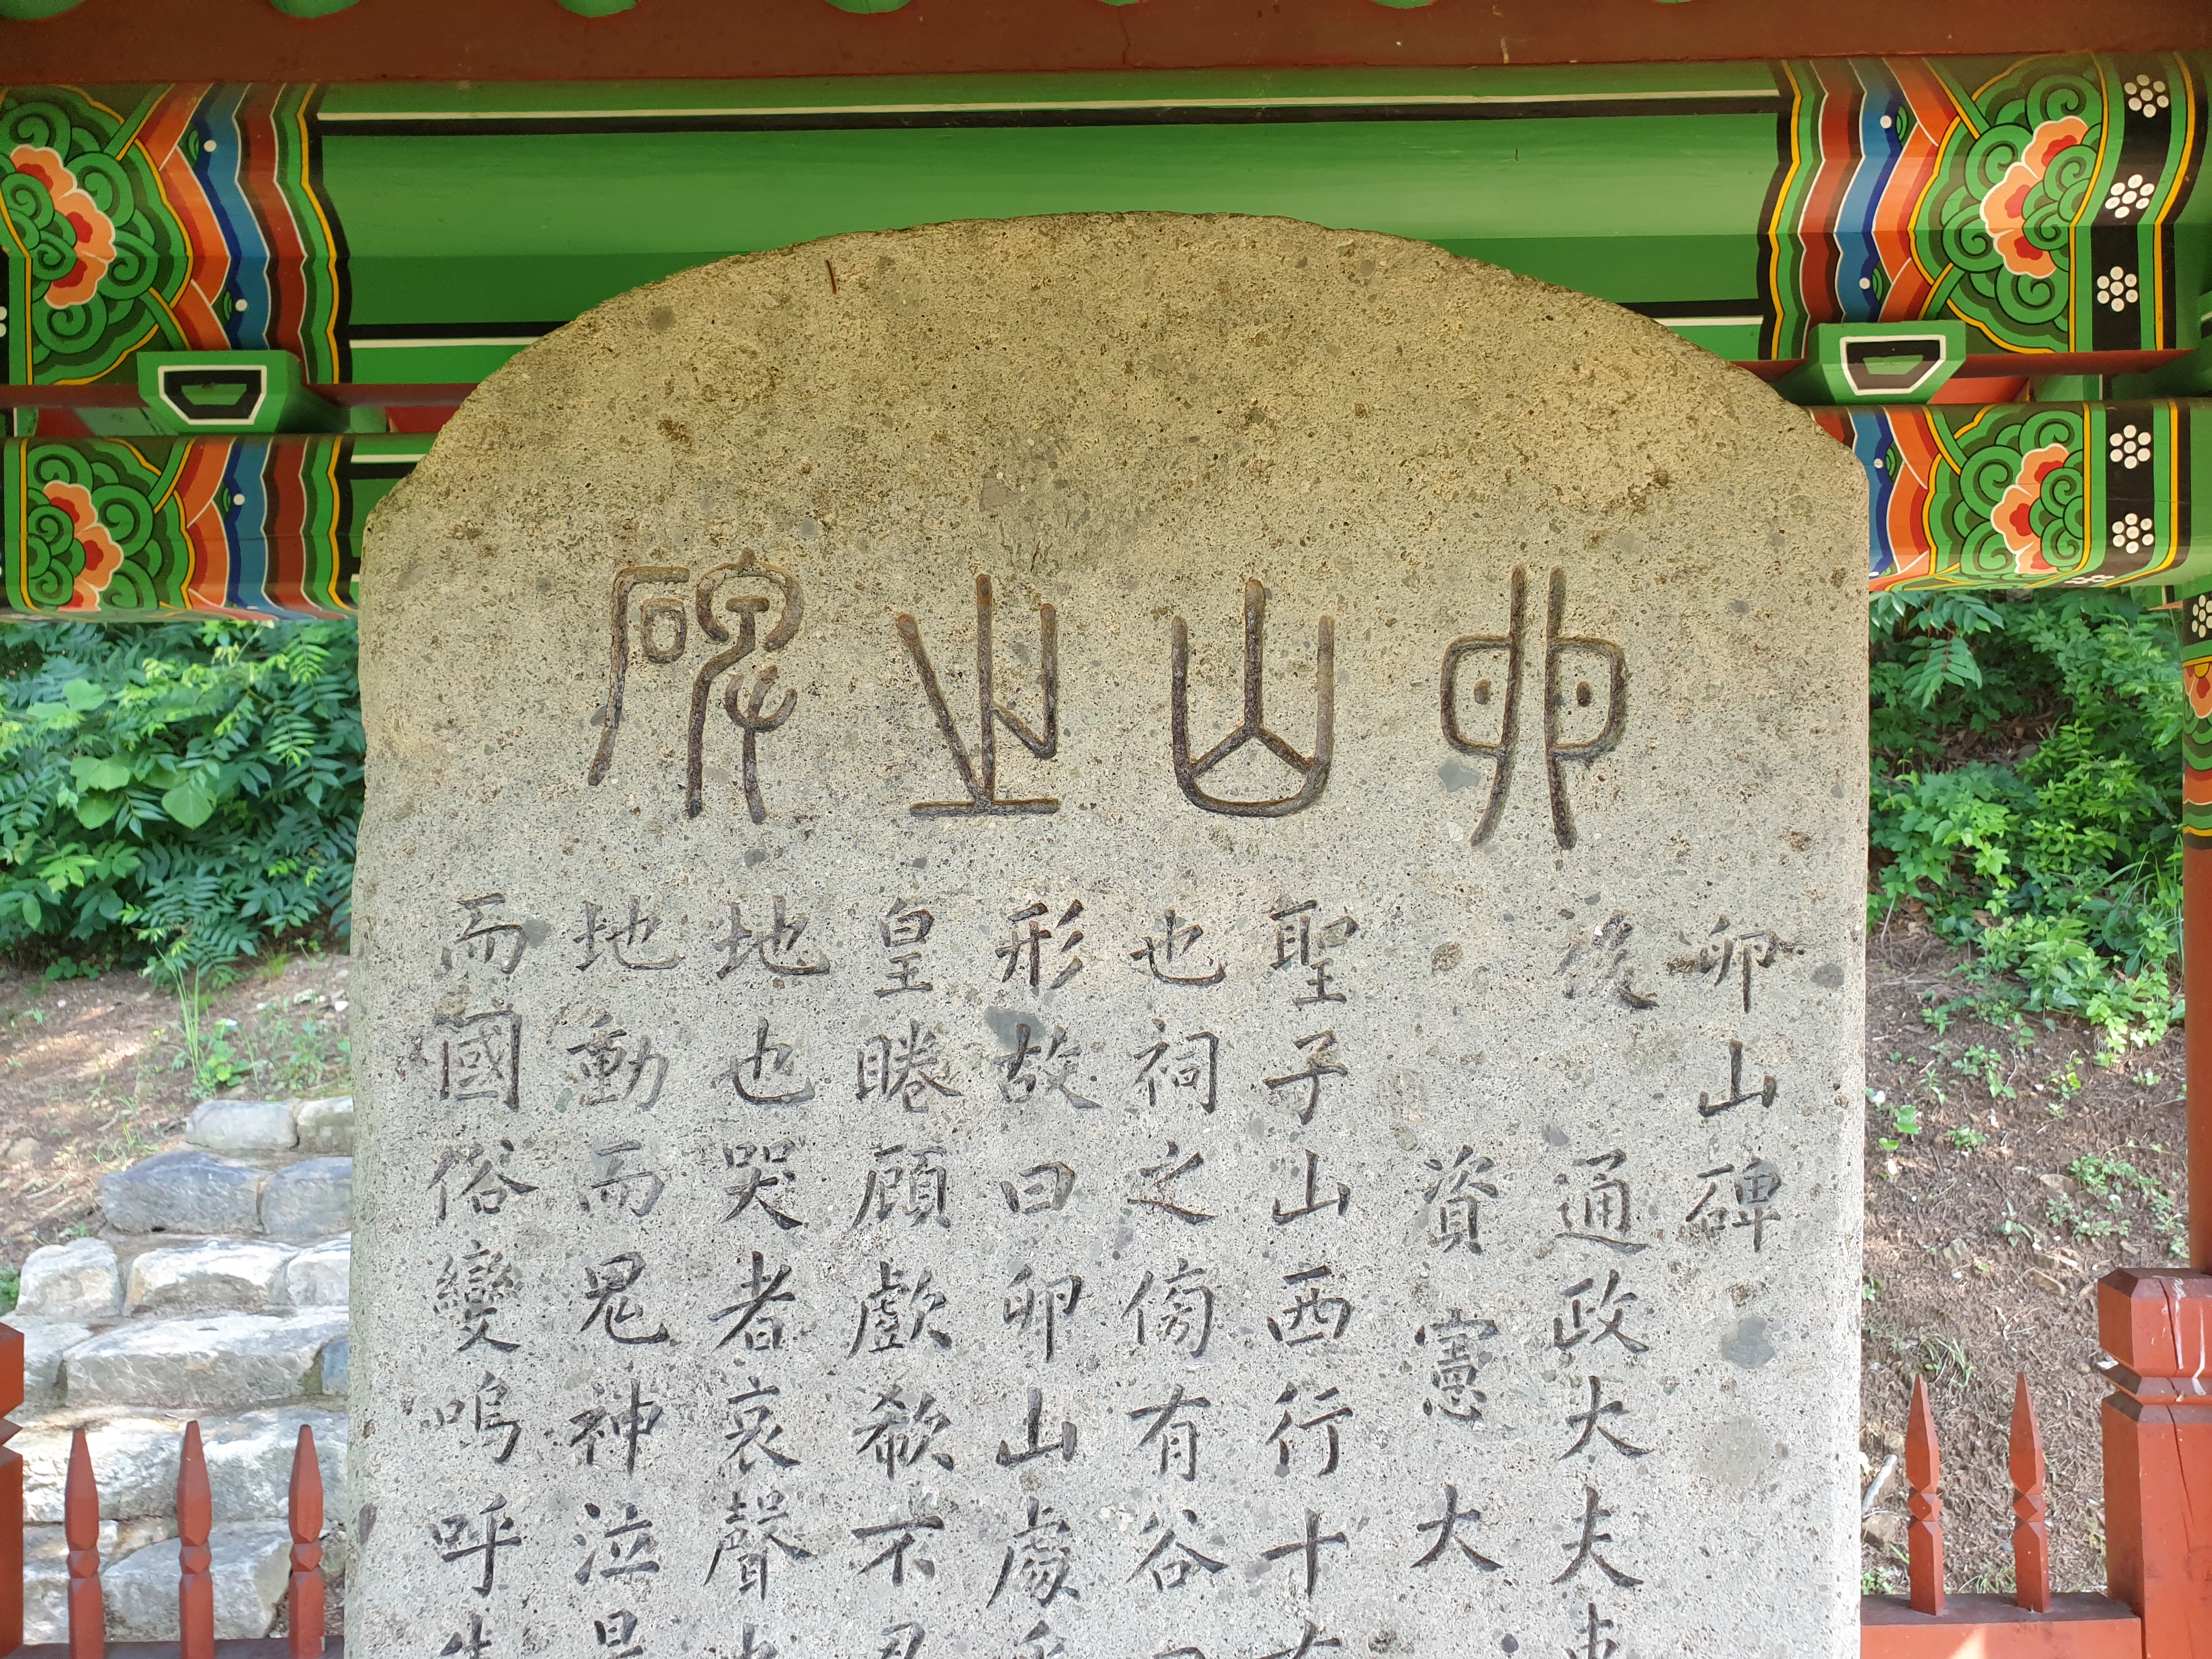 卯山之碑
卯山碑
後 通政大夫
資憲大
聖子山西行十
也祠之傍有谷
形故曰卯山處
皇睠顧歔欷不
地也哭者哀聲
地動而鬼神泣
而國俗變嗚呼